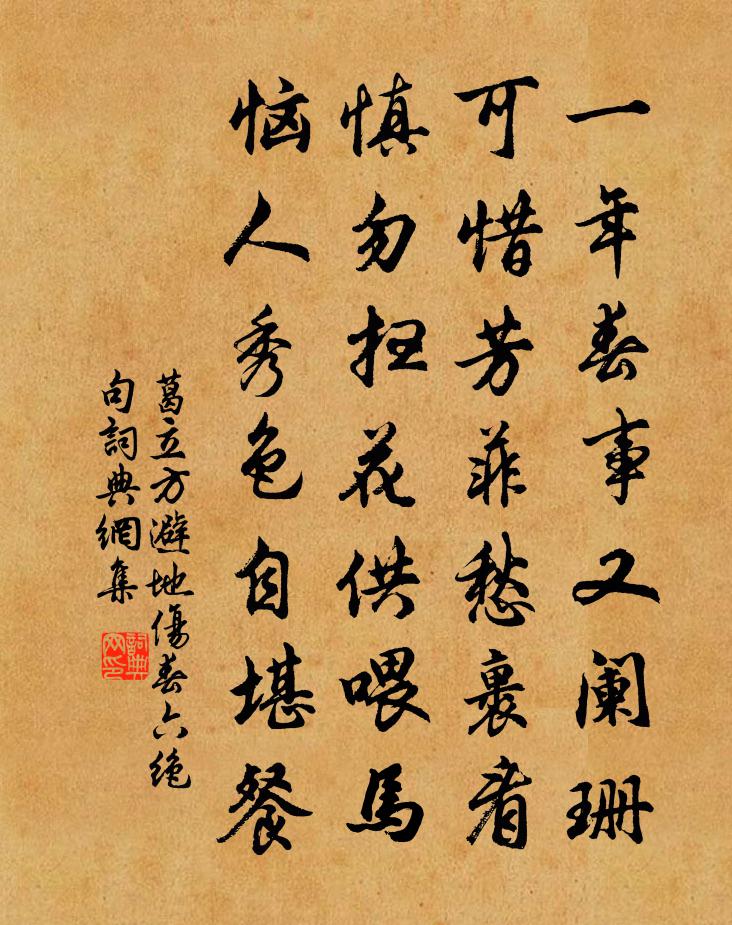 一年春事又阑珊
可惜芳菲愁裏看
慎勿扫花供喂馬
恼人秀色自堪餐
葛立方避地傷春六絶
句詞典網集
詞典网印